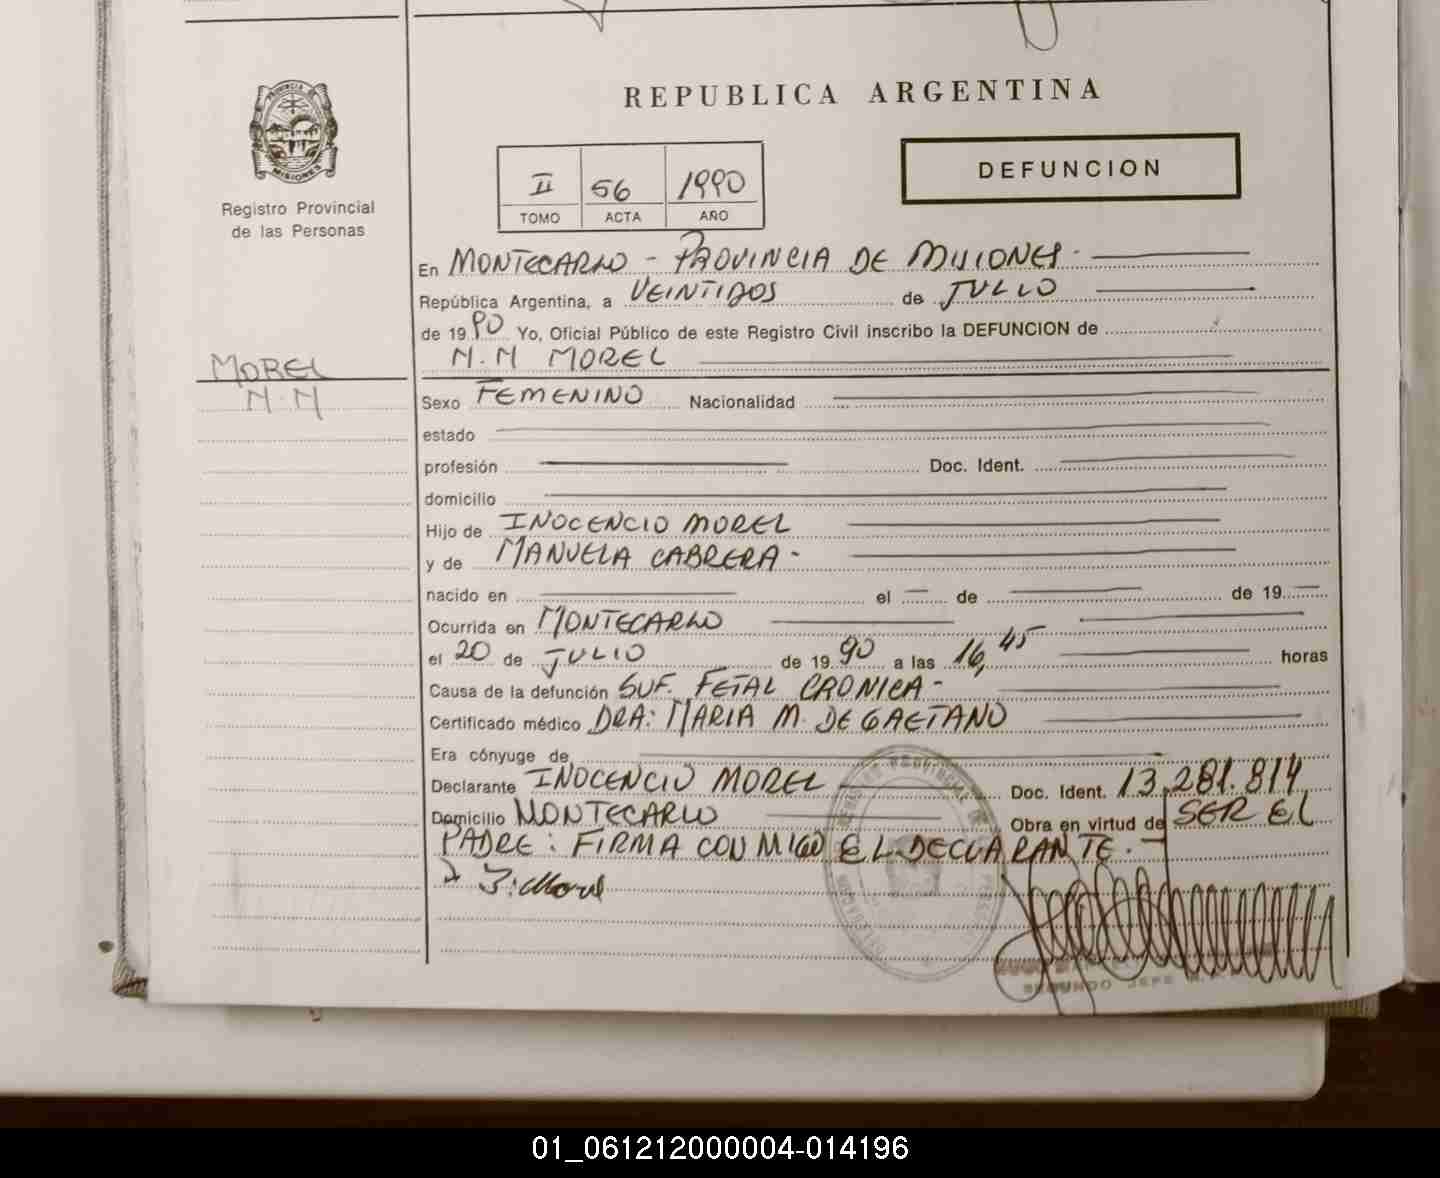 REPUBLICA ARGENTINA
PROVINCIA DE
MISIONES
Registro Provincial
de las Personas
II 56 1990
TOMO ACTA AÑO
DEFUNCION
En MONTECARLO - PROVINCIA DE MISIONES -
República Argentina, a VEINTIDOS de JULIO
de 1990 Yo, Oficial Público de este Registro Civil inscribo la DEFUNCION de
N.N MOREL
MOREL
N.N
Sexo FEMENINO Nacionalidad
estado
profesión Doc. Ident.
domicilio
Hijo de INOCENCIO MOREL
y de MANUELA CABRERA -
nacido en el de de 19
Ocurrida en MONTECARLO
el 20 de JULIO de 1990 a las 16,45 horas
Causa de la defunción SUF. FETAL CRONICA -
Certificado médico DRA: MARIA M. DE GAETANO
Era cónyuge de
Declarante INOCENCIO MOREL Doc. Ident. 13.281.814
Domicilio MONTECARLO Obra en virtud de SER EL
PADRE: FIRMA CONMIGO EL DECLARANTE. -
I. Morel
SEGUNDO JEFE
01_061212000004-014196